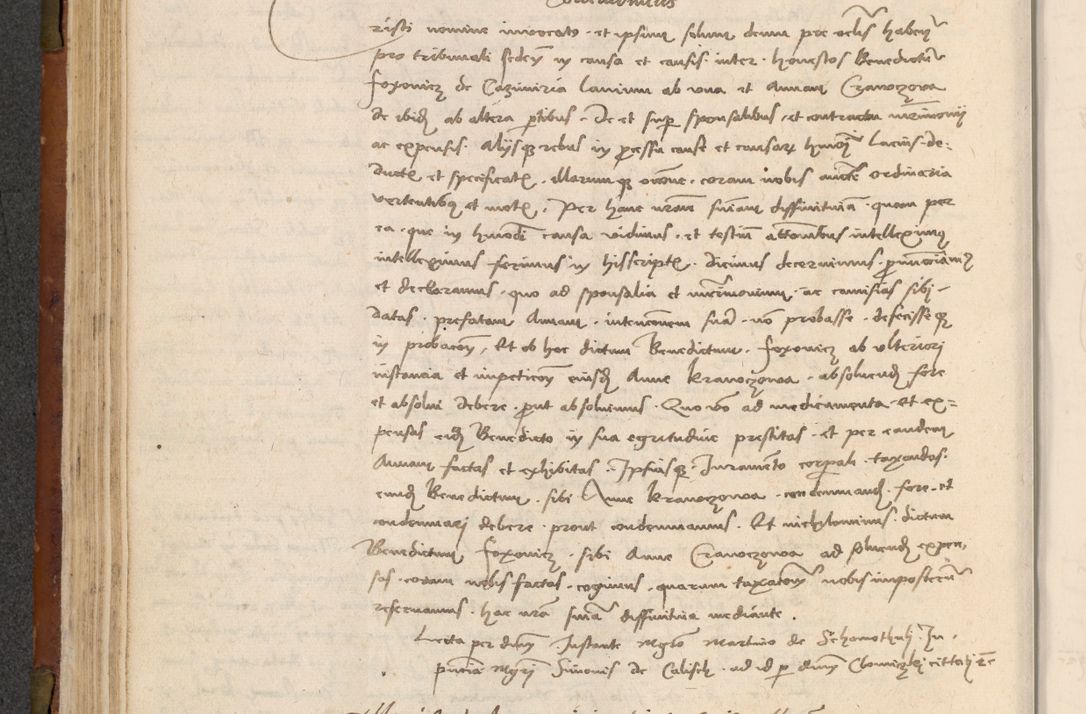 risti nomine invocato et ipsum solum deum pre oclis haben
pro tribunali sedен in causa et causis inter honestos Benedictum
Foxowicz de Cazimiria lanium ab una et Annam Crawczowa
de ibid ab altera ptibus De et sup sponsalibus et contractu mrimonij
ac expensis Alijsq rebus in pcessu cause et causar hmoi lacius de-
ductis et specificatis illarumq occone coram nobis aucte ordinaria
vertentibus et motis Per hanc nram sniam diffinitivam quam per
ea que in hmodi causa vidimus et testium attonibus intelleximus
intelleximus ferimus in hisscriptis dicimus decernimus pnunciamus
et declaramus quo ad sponsalia et mrimonium ac camisias sibi
datas prefatam Annam intencionem suam no probasse defecisseq
in probacoe Et ob hoc dictum Benedictum Foxowicz ab ulteriori
instancia et impeticoe eiusd Anne Krawczowa absolvend fore
et absolvi debere put absolvimus Quo vo ad medicamenta et ex=
pensas eid Benedicto in sua egritudine prestitas et per eandem
Annam factas et exhibitas Ipsiusq Iuramento corporali taxandas
eund Benedictum sibi Anne Krawczowa condemnand fore et
condemnari debere prout condemnamus Et nichylominus dictum
Benedictum Foxowicz sibi Anne Crawczowa ad solvend expen
sas coram nobis factas cogimus quarum taxatoem nobis imposterum
reservamus hac nra snia diffinitiva mediante
Lecta per dnum Instante Mgro Martino de Schamothuli In
pncia Mgri Simonis de Calisch ad id p dnum